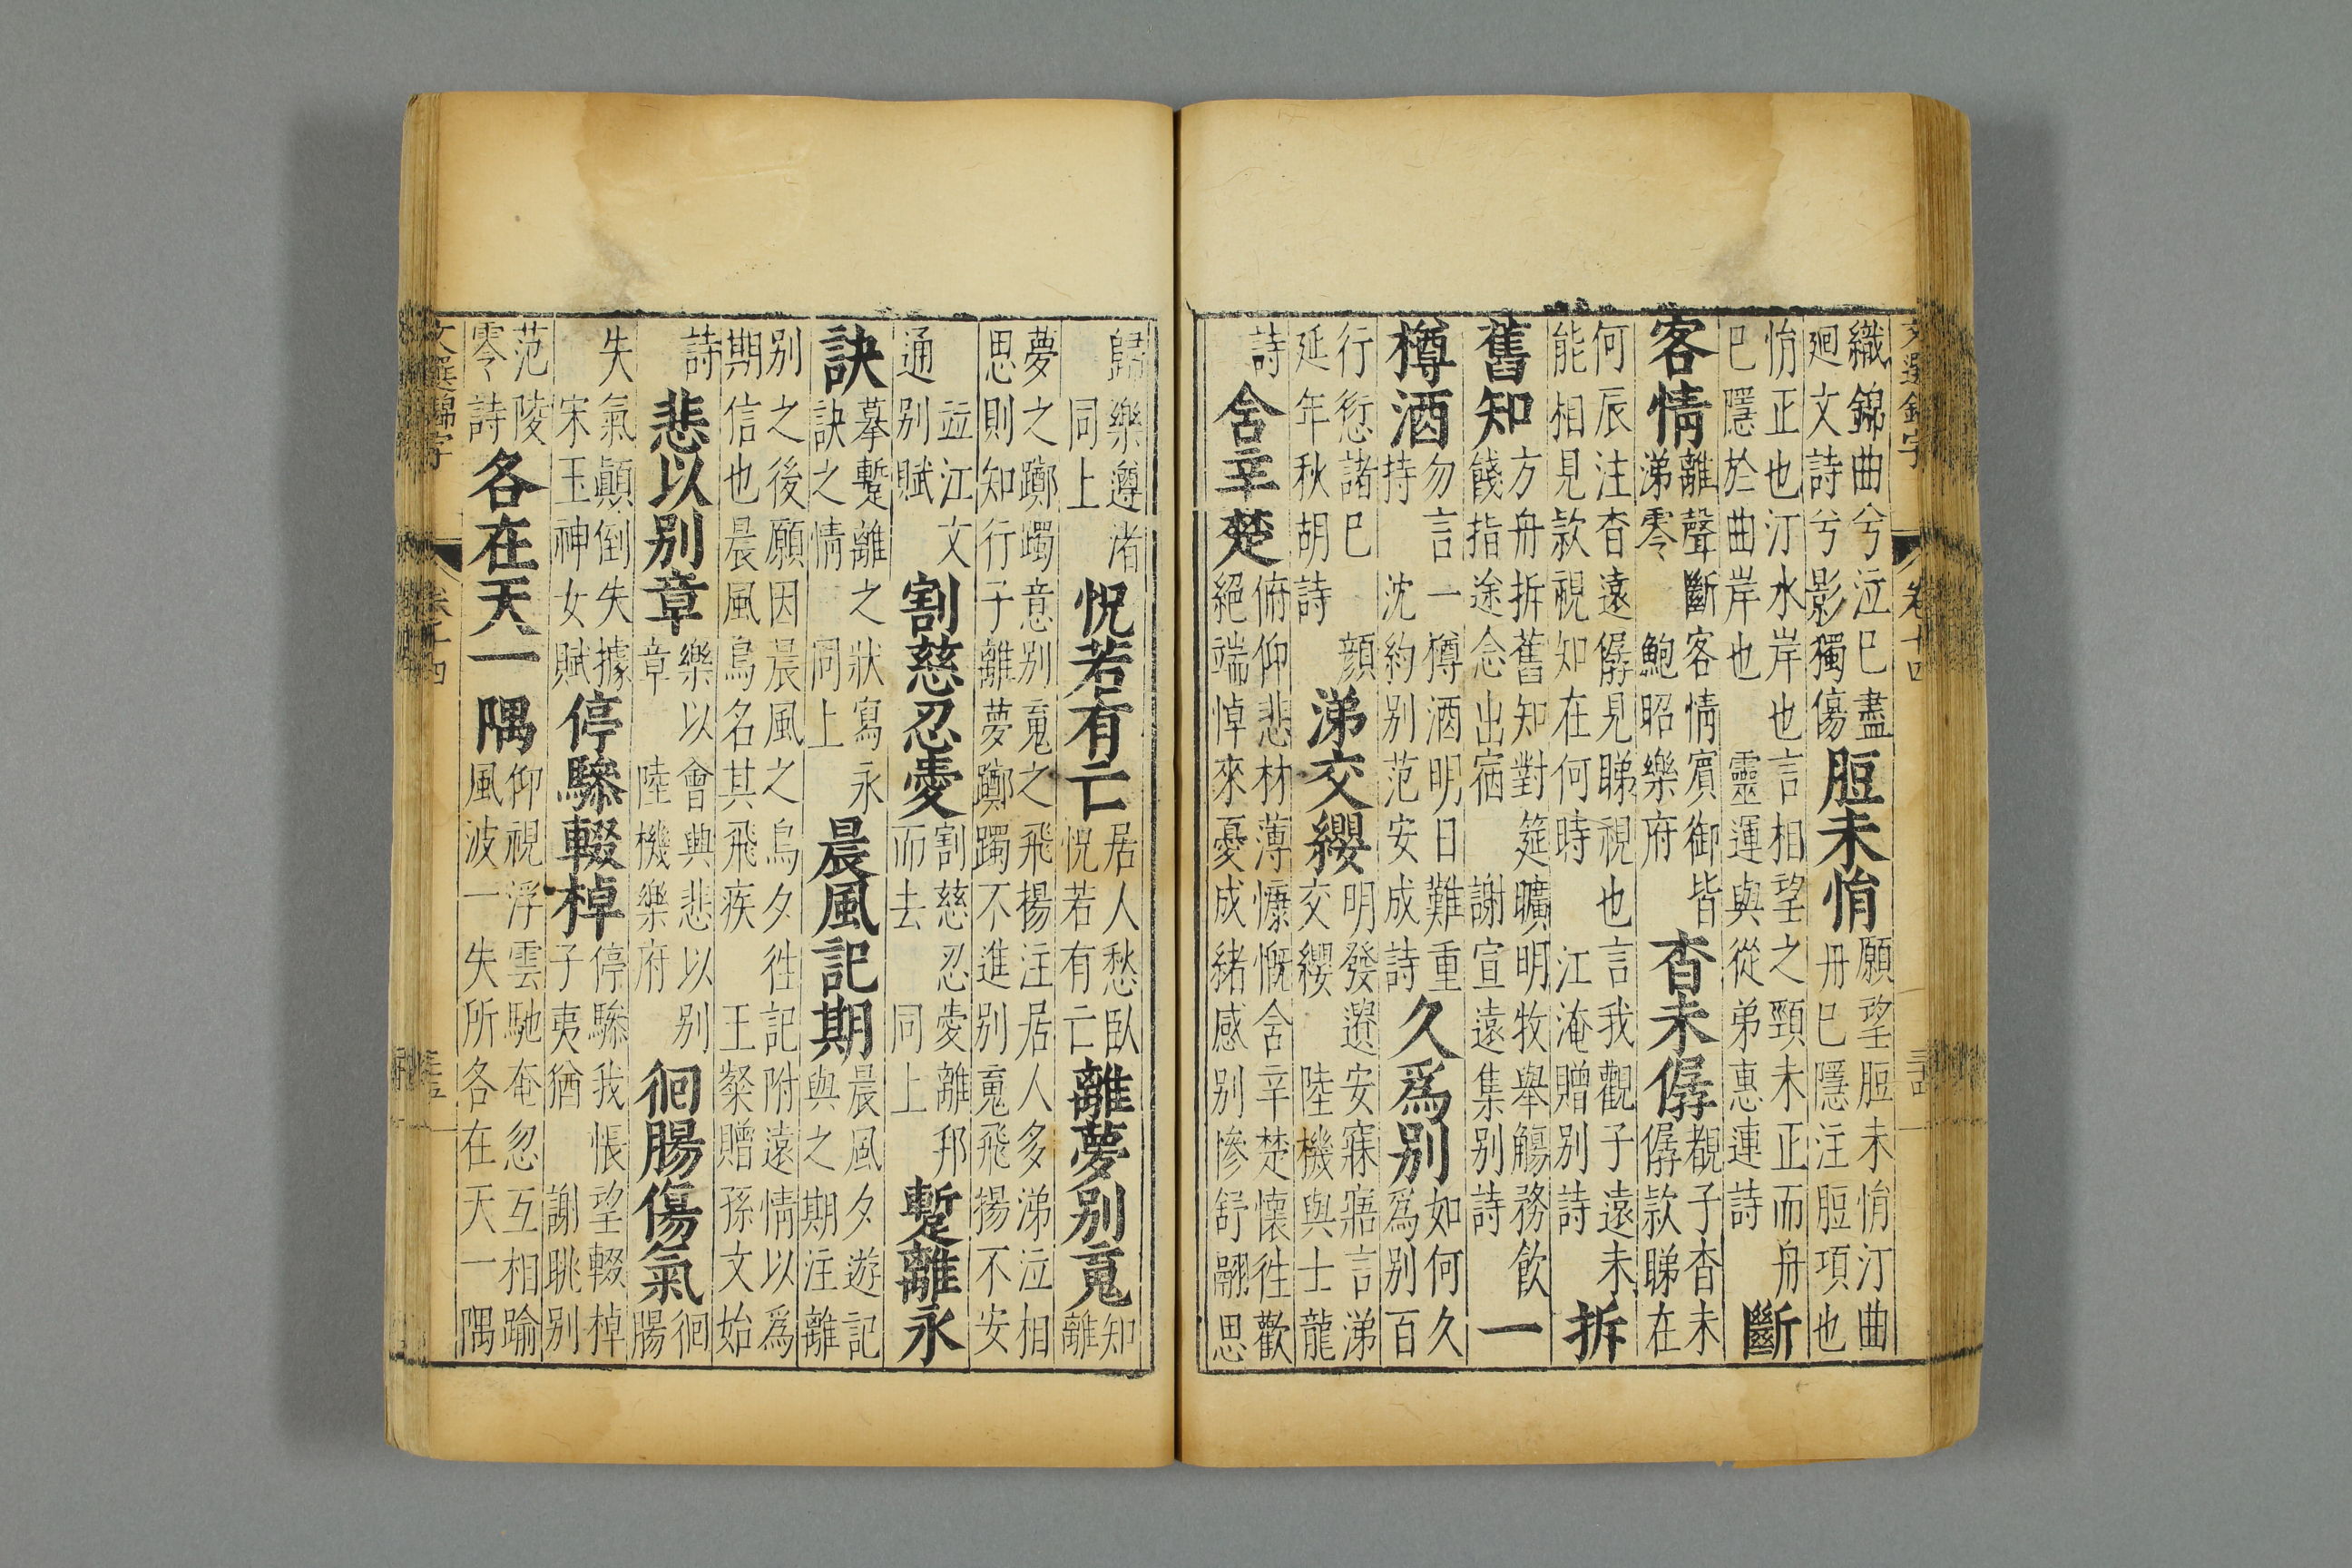 文選錦字 卷十四
織錦曲兮泣已盡
廻文詩兮影獨傷
脰未悁
願望脰未悁汀曲
舟已隱注脰項也
悁正也汀水岸也言相望之頸未正而舟
已隱於曲岸也 靈運與從弟惠連詩
斷客情
離聲斷客情賓御皆
涕零 鮑昭樂府
杳未僝
覩子杳未
僝款睇在
何辰注杳遠僝見睇視也言我觀子遠未
能相見款視知在何時 江淹贈別詩
拆舊知
方舟拆舊知對筵曠明牧舉觴務飲
餞指途念出宿 謝宣遠集別詩
一樽酒
勿言一樽酒明日難重
持 沈約別范安成詩
久爲別
如何久
爲別百
行愆諸已
延年秋胡詩 顔
涕交纓
明發遺安寐寤言涕
交纓 陸機與士龍
詩
舍辛楚
俯仰悲材薄慷慨舍辛楚懷徃歡
絕端悼來憂成緒感別慘舒翮思
歸樂遵渚
同上
怳若有亡
居人愁臥
怳若有亡
離夢別䰟
知離
夢之躑躅意別䰟之飛揚注居人多涕泣相
思則知行子離夢躑躅不進別䰟飛揚不安
並江文
通別賦
割慈忍愛
割慈忍愛離邦
而去 同上
蹔離永訣
摹蹔離之狀寫永
訣之情 同上
晨風記期
晨風夕遊記
與之期注離
別之後願因晨風之鳥夕徃記附遠情以爲
期信也晨風鳥名其飛疾 王粲贈孫文始
詩
悲以別章
樂以會興悲以別
章 陸機樂府
徊腸傷氣
徊腸
失氣顛倒失據
宋玉神女賦
停驂輟棹
停驂我悵望輟棹
子夷猶 謝眺別
范陵
零詩
各在天一隅
仰視浮雲馳奄忽互相踰
風波一失所各在天一隅
文選錦字 卷十四